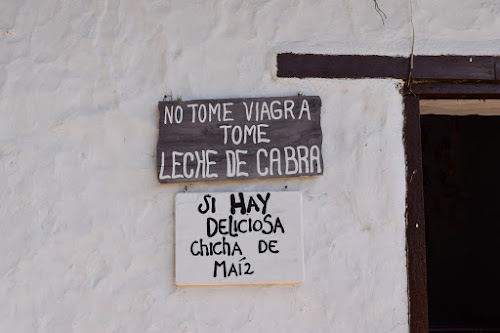 NO TOME VIAGRA
TOME
LECHE DE CABRA
SI HAY
DELICIOSA
CHICHA DE
MAÍZ